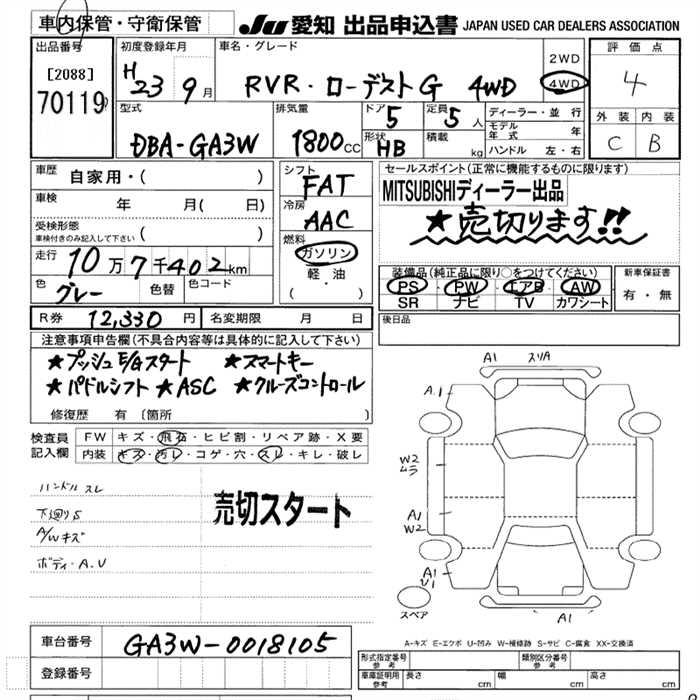 車内保管・守衛保管
JU 愛知 出品申込書 JAPAN USED CAR DEALERS ASSOCIATION
出品番号
[2088]
70119
初度登録年月
H23 9月
車名・グレード
RVR・ローデスト G 4WD
2WD
4WD
評価点
4
外装 内装
C B
型式
DBA-GA3W
排気量
1800cc
ドア 5
定員 5人
形状 HB
積載 kg
ディーラー・並行
モデル年式 年
ハンドル 左・右
車歴 自家用・( )
車検 年 月( 日)
受検形態
車検付きのみ記入して下さい ( )
走行 10万7千402km
色 グレー
色替
色コード
シフト
FAT
冷房
AAC
燃料
ガソリン
軽・油
( ・ )
セールスポイント(正常に機能するものに限ります)
MITSUBISHIディーラー出品
★売切ります!!
装備品(純正品に限り○をつけてください)
PS PW エアB AW
SR ナビ TV カワシート
新車保証書
有・無
R券 12,330円
名変期限 月 日
後日品
注意事項申告欄(不具合内容等は具体的に記入して下さい)
★プッシュE/Gスタート ★スマートキー
★パドルシフト ★ASC ★クルーズコントロール
修復歴 有 〔箇所 〕
検査員
記入欄
FW キズ・飛石・ヒビ割・リペア跡・X要
内装 キズ・汚レ・コゲ・穴・スレ・キレ・破レ
ハンドル スレ
下廻りS
A/Wキズ
ボディ・A.U
売切スタート
A1 スリA
A.1
W2
ムラ
A1
W2
A1
U1
A1
スペア
A-キズ E-エクボ U-凹み W-補修跡 S-サビ C-腐食 XX-交換済
車台番号 GA3W-0018105
登録番号
形式指定番号
参考
類別区分番号
参考
車庫証明用
参考
長さ cm 幅 cm 高さ cm